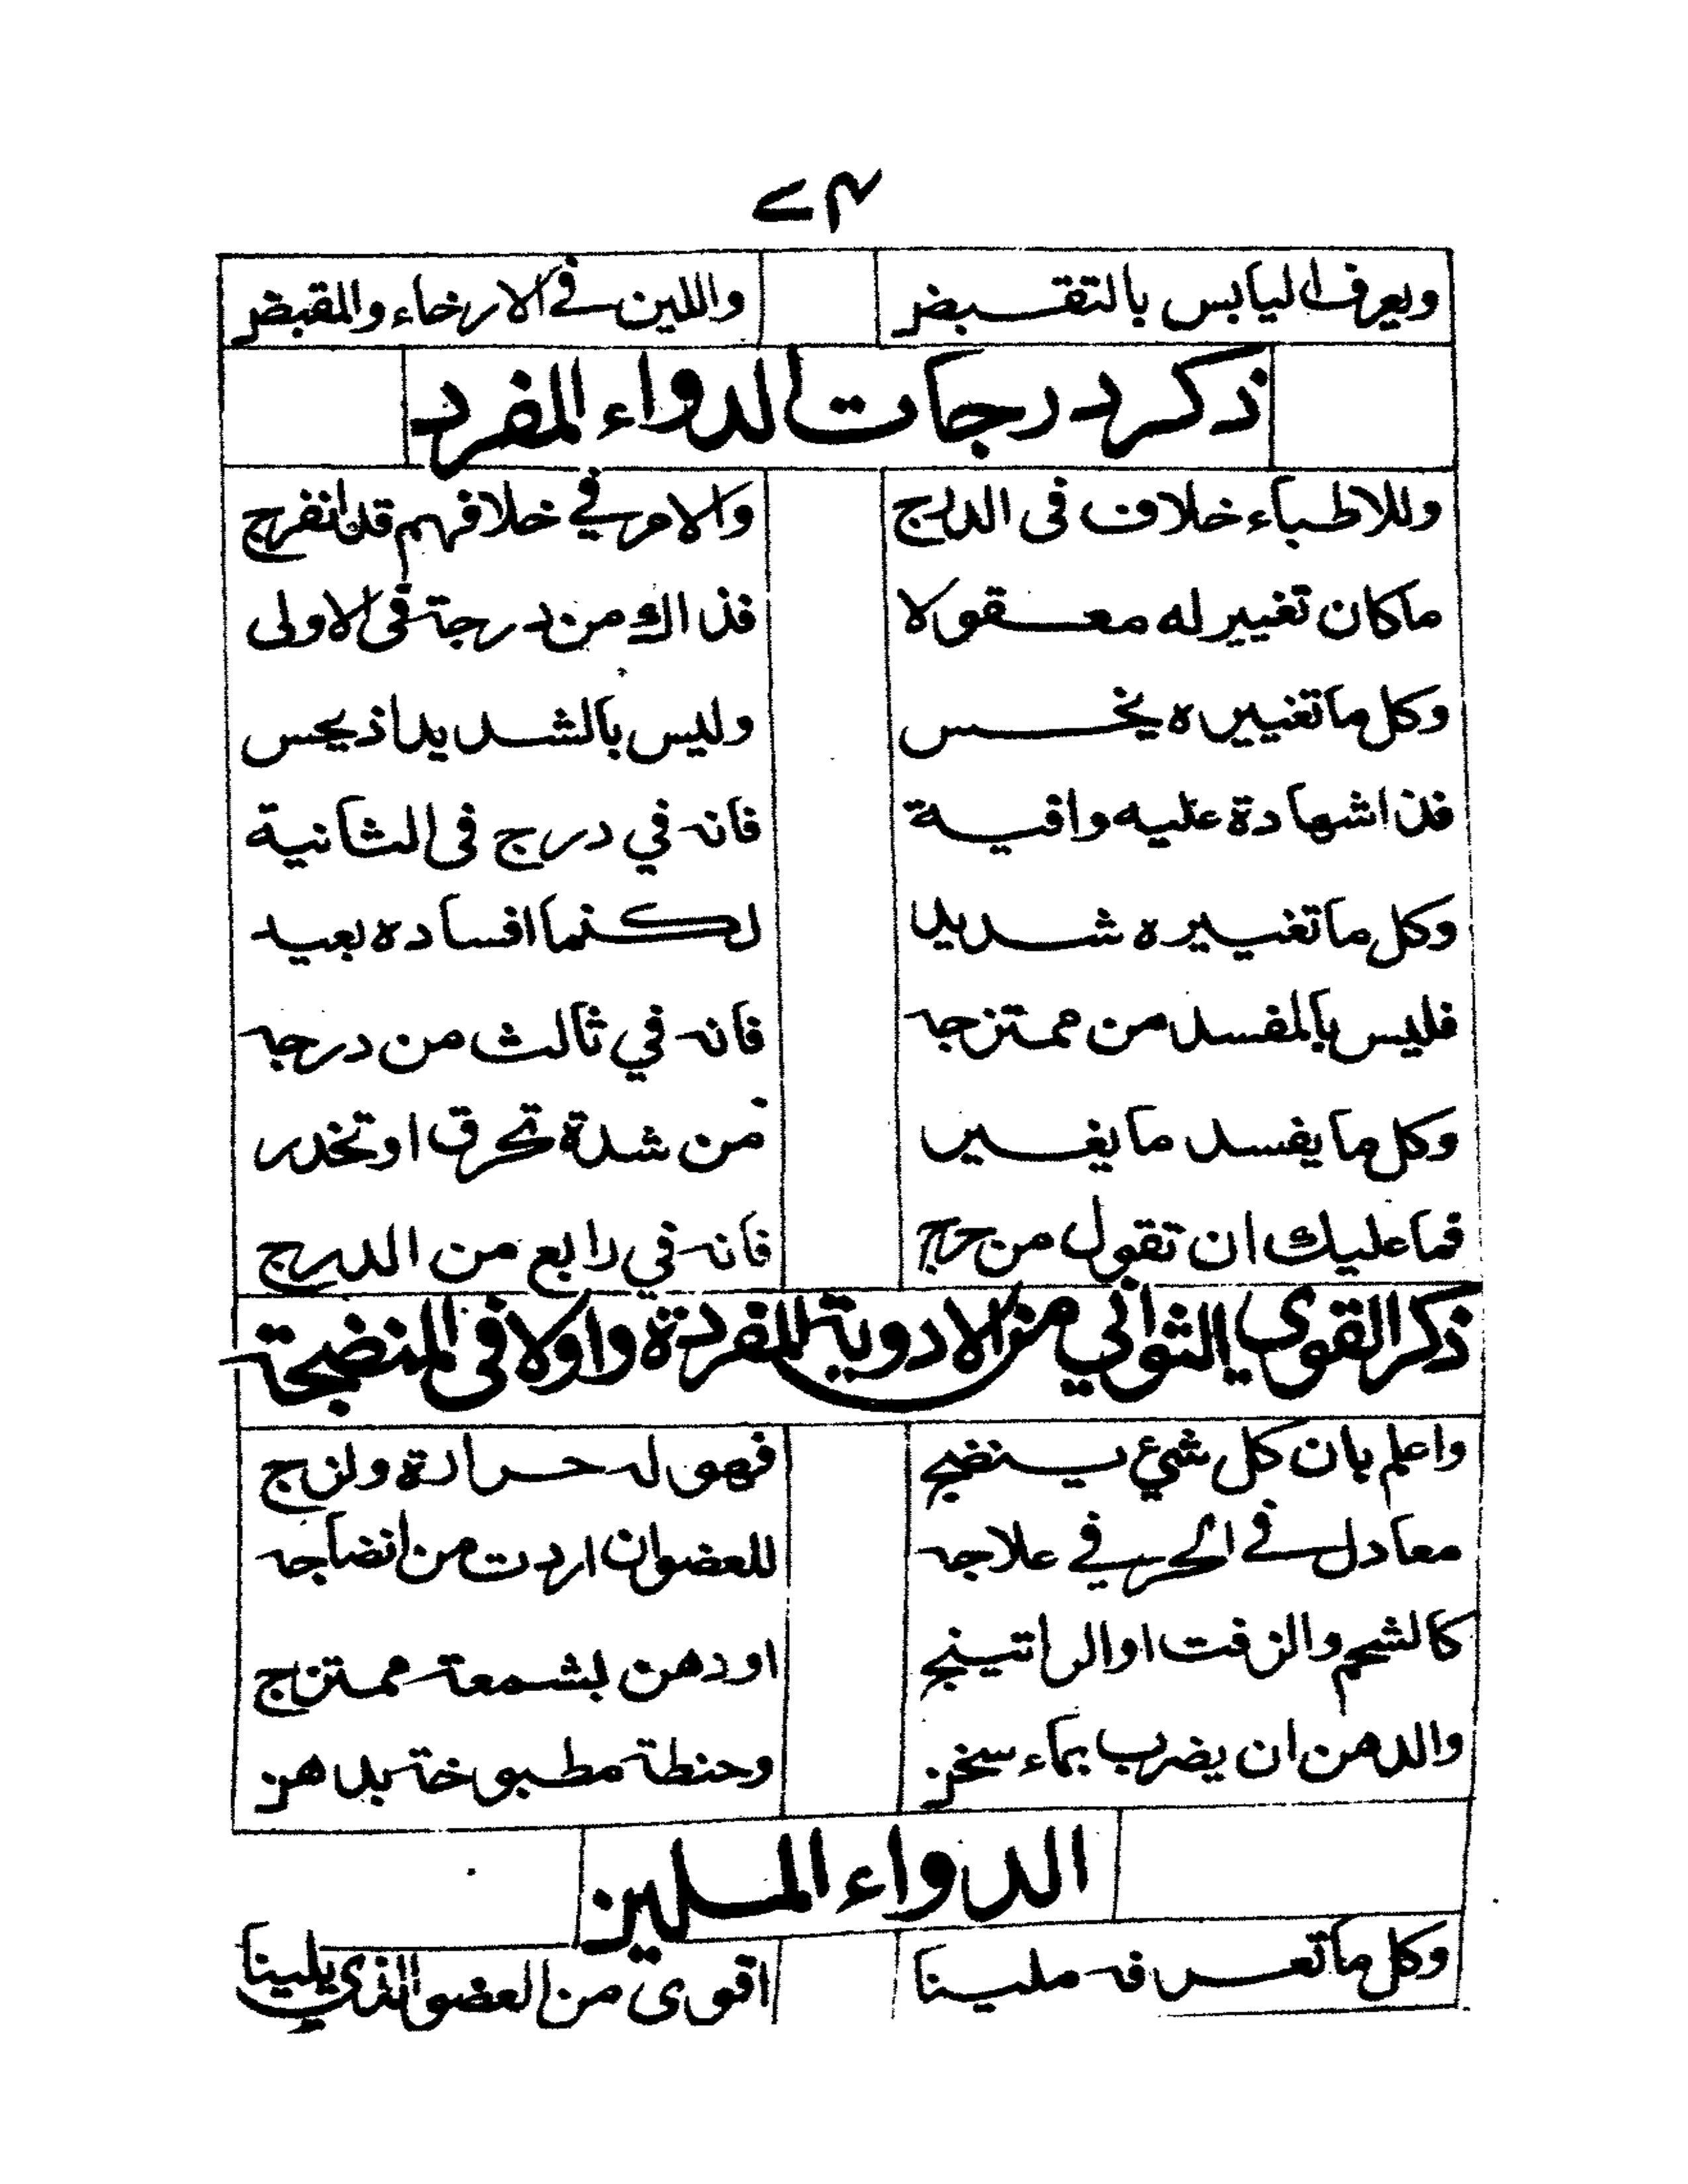 ويعرف اليابس بالتقبض واللين في الارخاء والمقبض
ذكر درجات الدواء المفرد
وللاطباء خلاف فى الدرج والامر في خلافهم قد انفرج
ماكان تغيير له معقولا فذاك من درجة فى الاولى
وكل ما تغييره يخس وليس بالشديد اذ يحس
فذا شهادة عليه وافية فانه في درج فى الثانية
وكل ما تغييره شديد لكنما افساده بعيد
فليس بالمفسد من ممتزجه فانه في ثالث من درجه
وكل ما يفسد ما يغير من شدة تحرق او تخدر
فما عليك ان تقول من حرج فانه في رابع من الدرج
ذكر القوى الثواني من الادوية المفردة واولا فى المنضجة
واعلم بان كل شيء ينضج فهو له حرارة ولزج
معادل في الحر في علاجه للعضو ان اردت من انضاجه
كالشحم والزفت او الراتينج او دهن بشمعة ممتزج
والدهن ان يضرب بماء سخن وحنطة مطبوخة بدهن
الدواء الملين
وكل ما تعرفه ملينا اقوى من العضو الذي يلينا